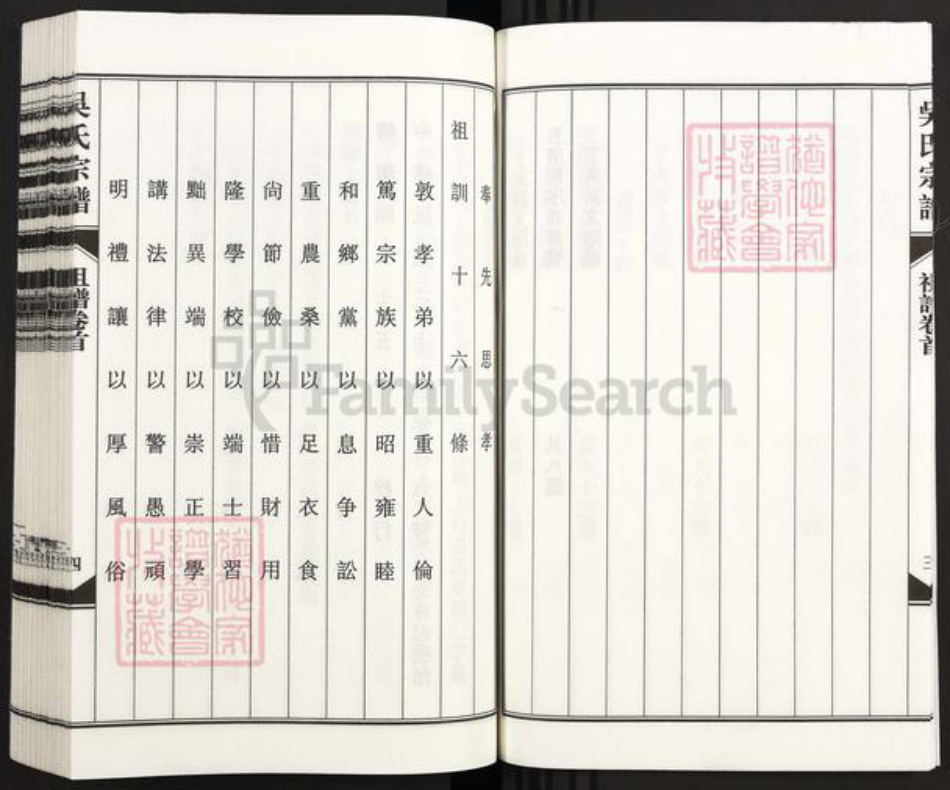 吳氏宗譜
祖譜卷首
三
奉先思孝
祖訓十六條
敦孝弟以重人倫
篤宗族以昭雍睦
和鄉黨以息争訟
重農桑以足衣食
尙節儉以惜財用
隆學校以端士習
黜異端以崇正學
講法律以警愚頑
明禮讓以厚風俗
吳氏宗譜
祖譜卷首
四
FamilySearch